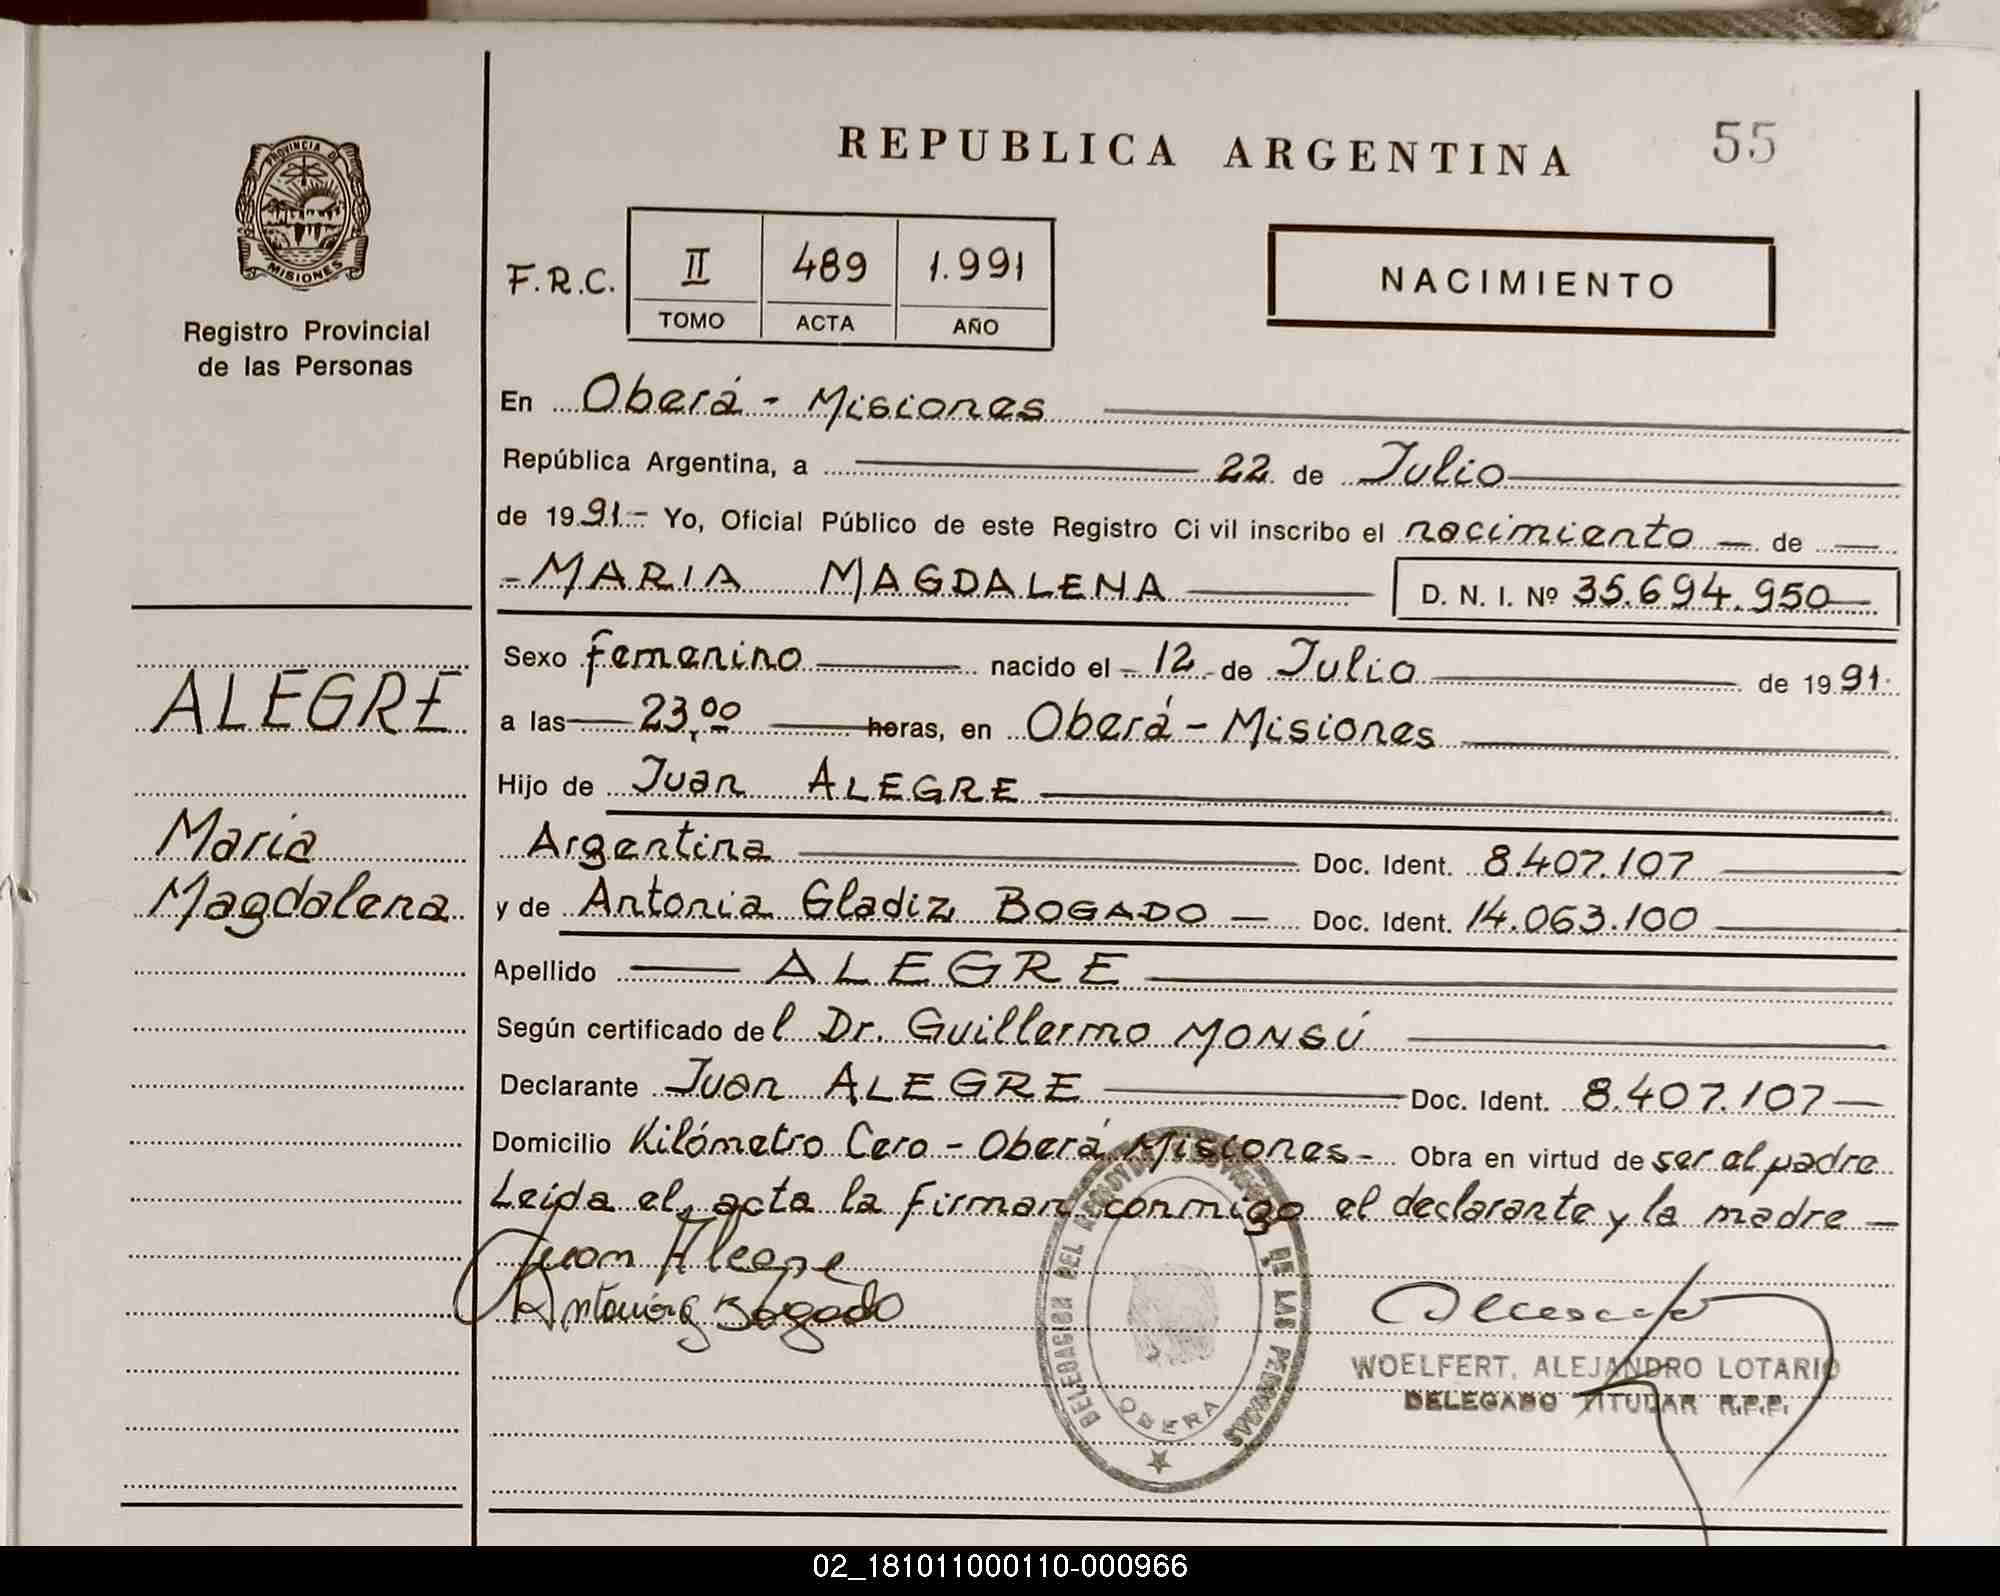 PROVINCIA DE
MISIONES
Registro Provincial
de las Personas
ALEGRE
Maria
Magdalena
REPUBLICA ARGENTINA
55
F.R.C.
II 489 1.991
TOMO ACTA AÑO
NACIMIENTO
En Oberá - Misiones
República Argentina, a 22 de Julio
de 1991 - Yo, Oficial Público de este Registro Civil inscribo el nacimiento - de
- MARIA MAGDALENA D. N. I. Nº 35.694.950
Sexo femenino nacido el - 12 - de Julio de 1991
a las 23,00 horas, en Oberá - Misiones
Hijo de Juan ALEGRE
Argentina Doc. Ident. 8.407.107
y de Antonia Gladiz BOGADO - Doc. Ident. 14.063.100
Apellido ALEGRE
Según certificado del Dr. Guillermo MONSÚ
Declarante Juan ALEGRE Doc. Ident. 8.407.107
Domicilio Kilómetro Cero - Oberá Misiones - Obra en virtud de ser el padre
Leida el acta la firman conmigo el declarante y la madre -
Juan Alegre
Antonia Bogado
DELEGACION DEL REGISTRO PROVINCIAL DE LAS PERSONAS
OBERA
WOELFERT, ALEJANDRO LOTARIO
DELEGADO TITULAR R.P.P.
02_181011000110-000966